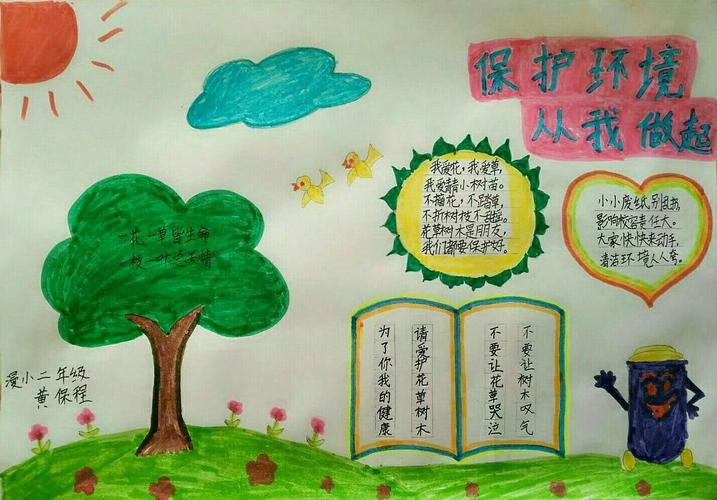 保护环境
从我做起
我爱花，我爱草，
我爱青青小树苗。
不摘花，不踏草，
不折树枝不乱摇。
花草树木是朋友，
我们都要保护好。
小小废纸别乱扔，
影响校容责任大。
大家快快来动手，
清洁环境人人夸。
一花一草皆生命
一枝一叶总关情
不要让树木叹气
不要让花草哭泣
请爱护花草树木
为了你我的健康
漫小二年级
黄保程